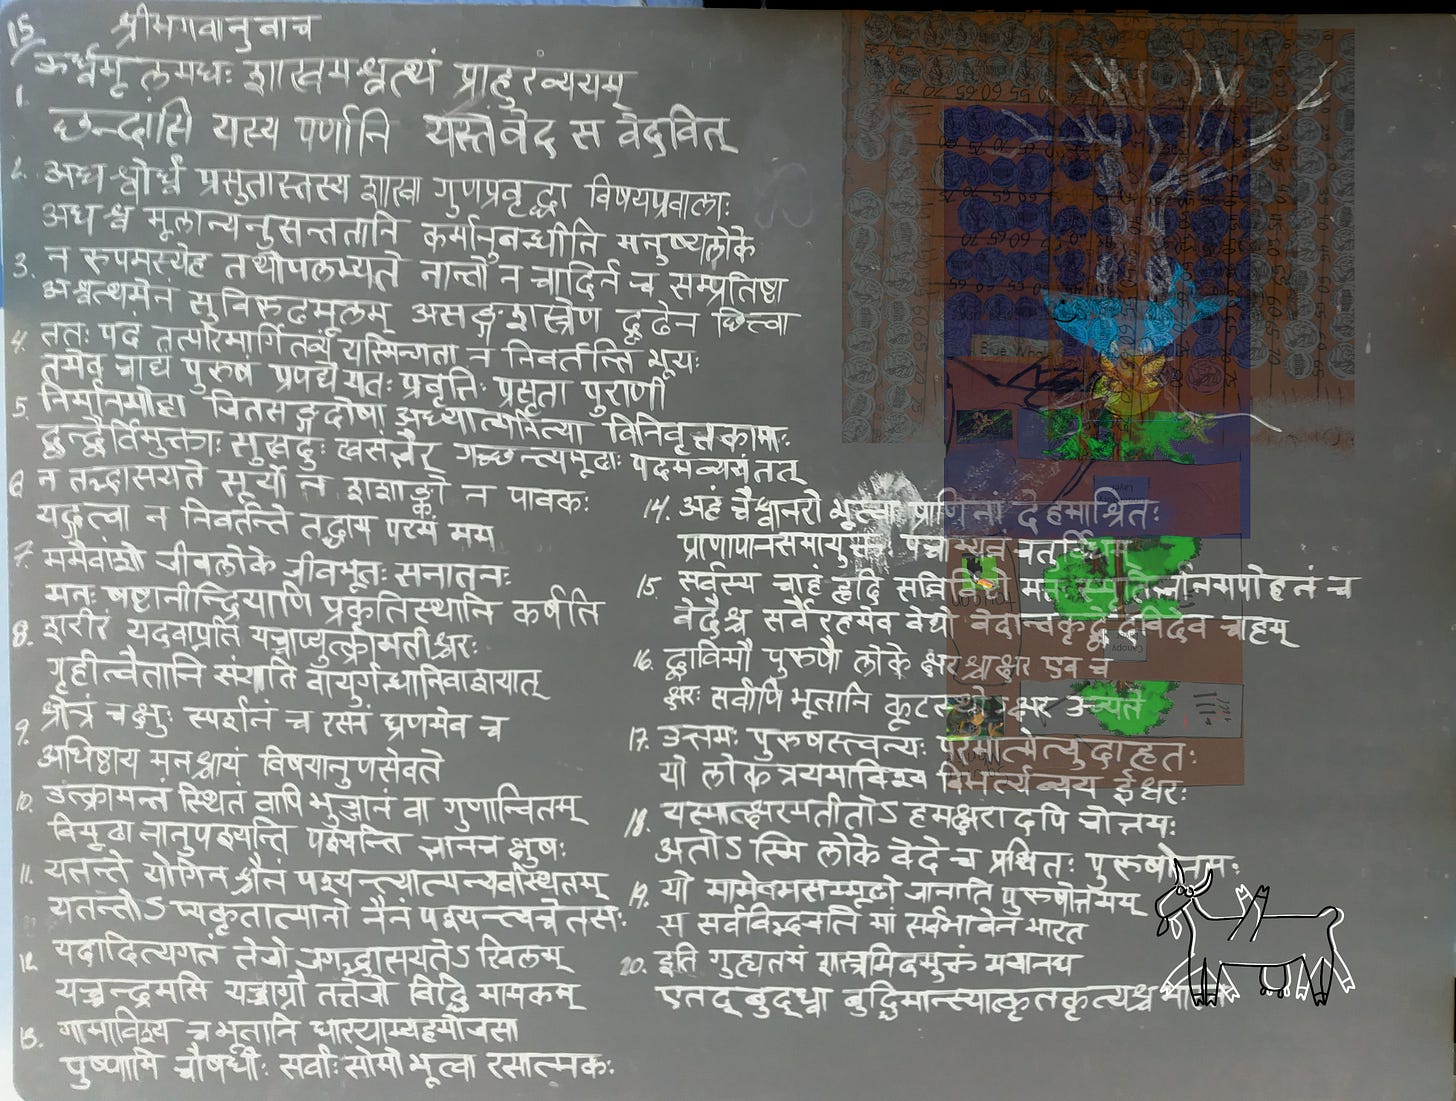 15
श्रीभगवानुवाच
ऊर्ध्वमूलमधः शाखमश्वत्थं प्राहुरव्ययम्
1.
छन्दांसि यस्य पर्णानि यस्तंवेद स वेदवित्
2. अधश्चोर्ध्वं प्रसुतास्तस्य शाखा गुणप्रवृद्धा विषयप्रवालाः
अधश्च मूलान्यनुसन्ततानि कर्मानुबन्धीनि मनुष्यलोके
3. न रुपमस्येह तथोपलभ्यते नान्तो न चादिर्न च सम्प्रतिष्ठा
अश्वत्थमेनं सुविरुढमूलम् असङ्गशस्त्रेण दृढेन छित्त्वा
4. ततः पदं तत्परिमार्गितव्यं यस्मिन्गता न निवर्तन्ति भूयः
तमेव चाद्यं पुरुषं प्रपद्ये यतः प्रवृत्तिः प्रसृता पुराणी
5. निर्मानमोहा जितसङ्गदोषा अध्यात्मनित्या विनिवृत्तकामाः
द्वन्द्वैर्विमुक्ताः सुखदुःखसंज्ञैर् गच्छन्त्यमूढाः पदमव्ययंतत्
6 न तद्भासयते सूर्यो न शशाङ्को न पावकः
यद्गत्वा न निवर्तन्ते तद्धाम परमं मम
7. ममैवांशो जीवलोके जीवभूतः सनातनः
मनः षष्टानीन्द्रियाणि प्रकृतिस्थानि कर्षति
8. शरीरं यदवाप्नोति यच्चाप्युत्क्रामतीश्वरः
गृहीत्वैतानि संयाति वायुर्गन्धानिवाशयात्
9. श्रोत्रं चक्षुः स्पर्शनं च रसनं घ्राणमेव च
अधिष्ठाय मनश्चायं विषयानुपसेवते
10. उत्क्रामन्तं स्थितं वापि भुञ्जानं वा गुणान्वितम्
विमूढा नानुपश्यन्ति पश्यन्ति ज्ञानचक्षुषः
11. यतन्तो योगिन श्चैनं पश्यन्त्यात्मन्यवस्थितम्
यतन्तोऽ प्यकृतात्मानो नैनं पश्यन्त्यचेतसः
12. यदादित्यगतं तेजो जगद्भासयतेऽ खिलम्
यच्चन्द्रमसि यच्चाग्नौ तत्तेजो विद्धि मामकम्
13. गामाविश्य च भूतानि धारयाम्यहमोजसा
पुष्णामि चौषधीः सर्वाः सोमो भूत्वा रसात्मकः
14. अहं वैश्वानरो भूत्वा प्राणिनां देहमाश्रितः
प्राणापानसमायुक्तः पचाम्यन्नं चतुर्विधम्
15. सर्वस्य चाहं हृदि सन्निविष्टो मत्तः स्मृतिर्ज्ञानमपोहनं च
वेदैश्च सर्वैरहमेव वेद्यो वेदान्तकृद्वेदविदेव चाहम्
16. द्वाविमौ पुरुषौ लोके क्षरश्चाक्षर एव च
क्षरः सर्वाणि भूतानि कूटस्थोऽक्षर उच्यते
17. उत्तमः पुरुषस्त्वन्यः परमात्मेत्युदाहृतः
यो लोकत्रयमाविश्य बिभर्त्यव्यय ईश्वरः
18. यस्मात्क्षरमतीतोऽ हमक्षरादपि चोत्तमः
अतोऽ स्मि लोके वेदे च प्रथितः पुरुषोत्तमः
19. यो मामेवमसम्मूढो जानाति पुरुषोत्तमम्
स सर्वविद्भजति मां सर्वभावेन भारत
20. इति गुह्यतमं शास्त्रमिदमुक्तं मयानघ
एतद् बुद्ध्वा बुद्धिमान्स्यात्कृतकृत्यश्च
Canopy